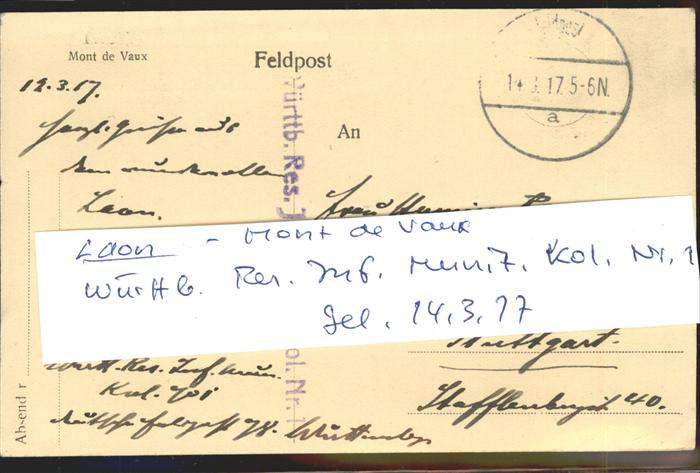 Mont de Vaux
Feldpost
12.3.17.
Feldpost
14.3.17.5-6N.
a
An
Herzl. Grüsse aus
dem wundervollen
Laon.
Frau
Württb. Res.
Laon - Mont de Vaux
Württb. Res. Inf. Munit. Kol. Nr. 1
Gel. 14.3.17
Stuttgart.
Württ. Res. Inf. Mun.
Kol. Nr. 1
Kol.
Staffenbergst 40.
Deutsche Feldpost
Absender